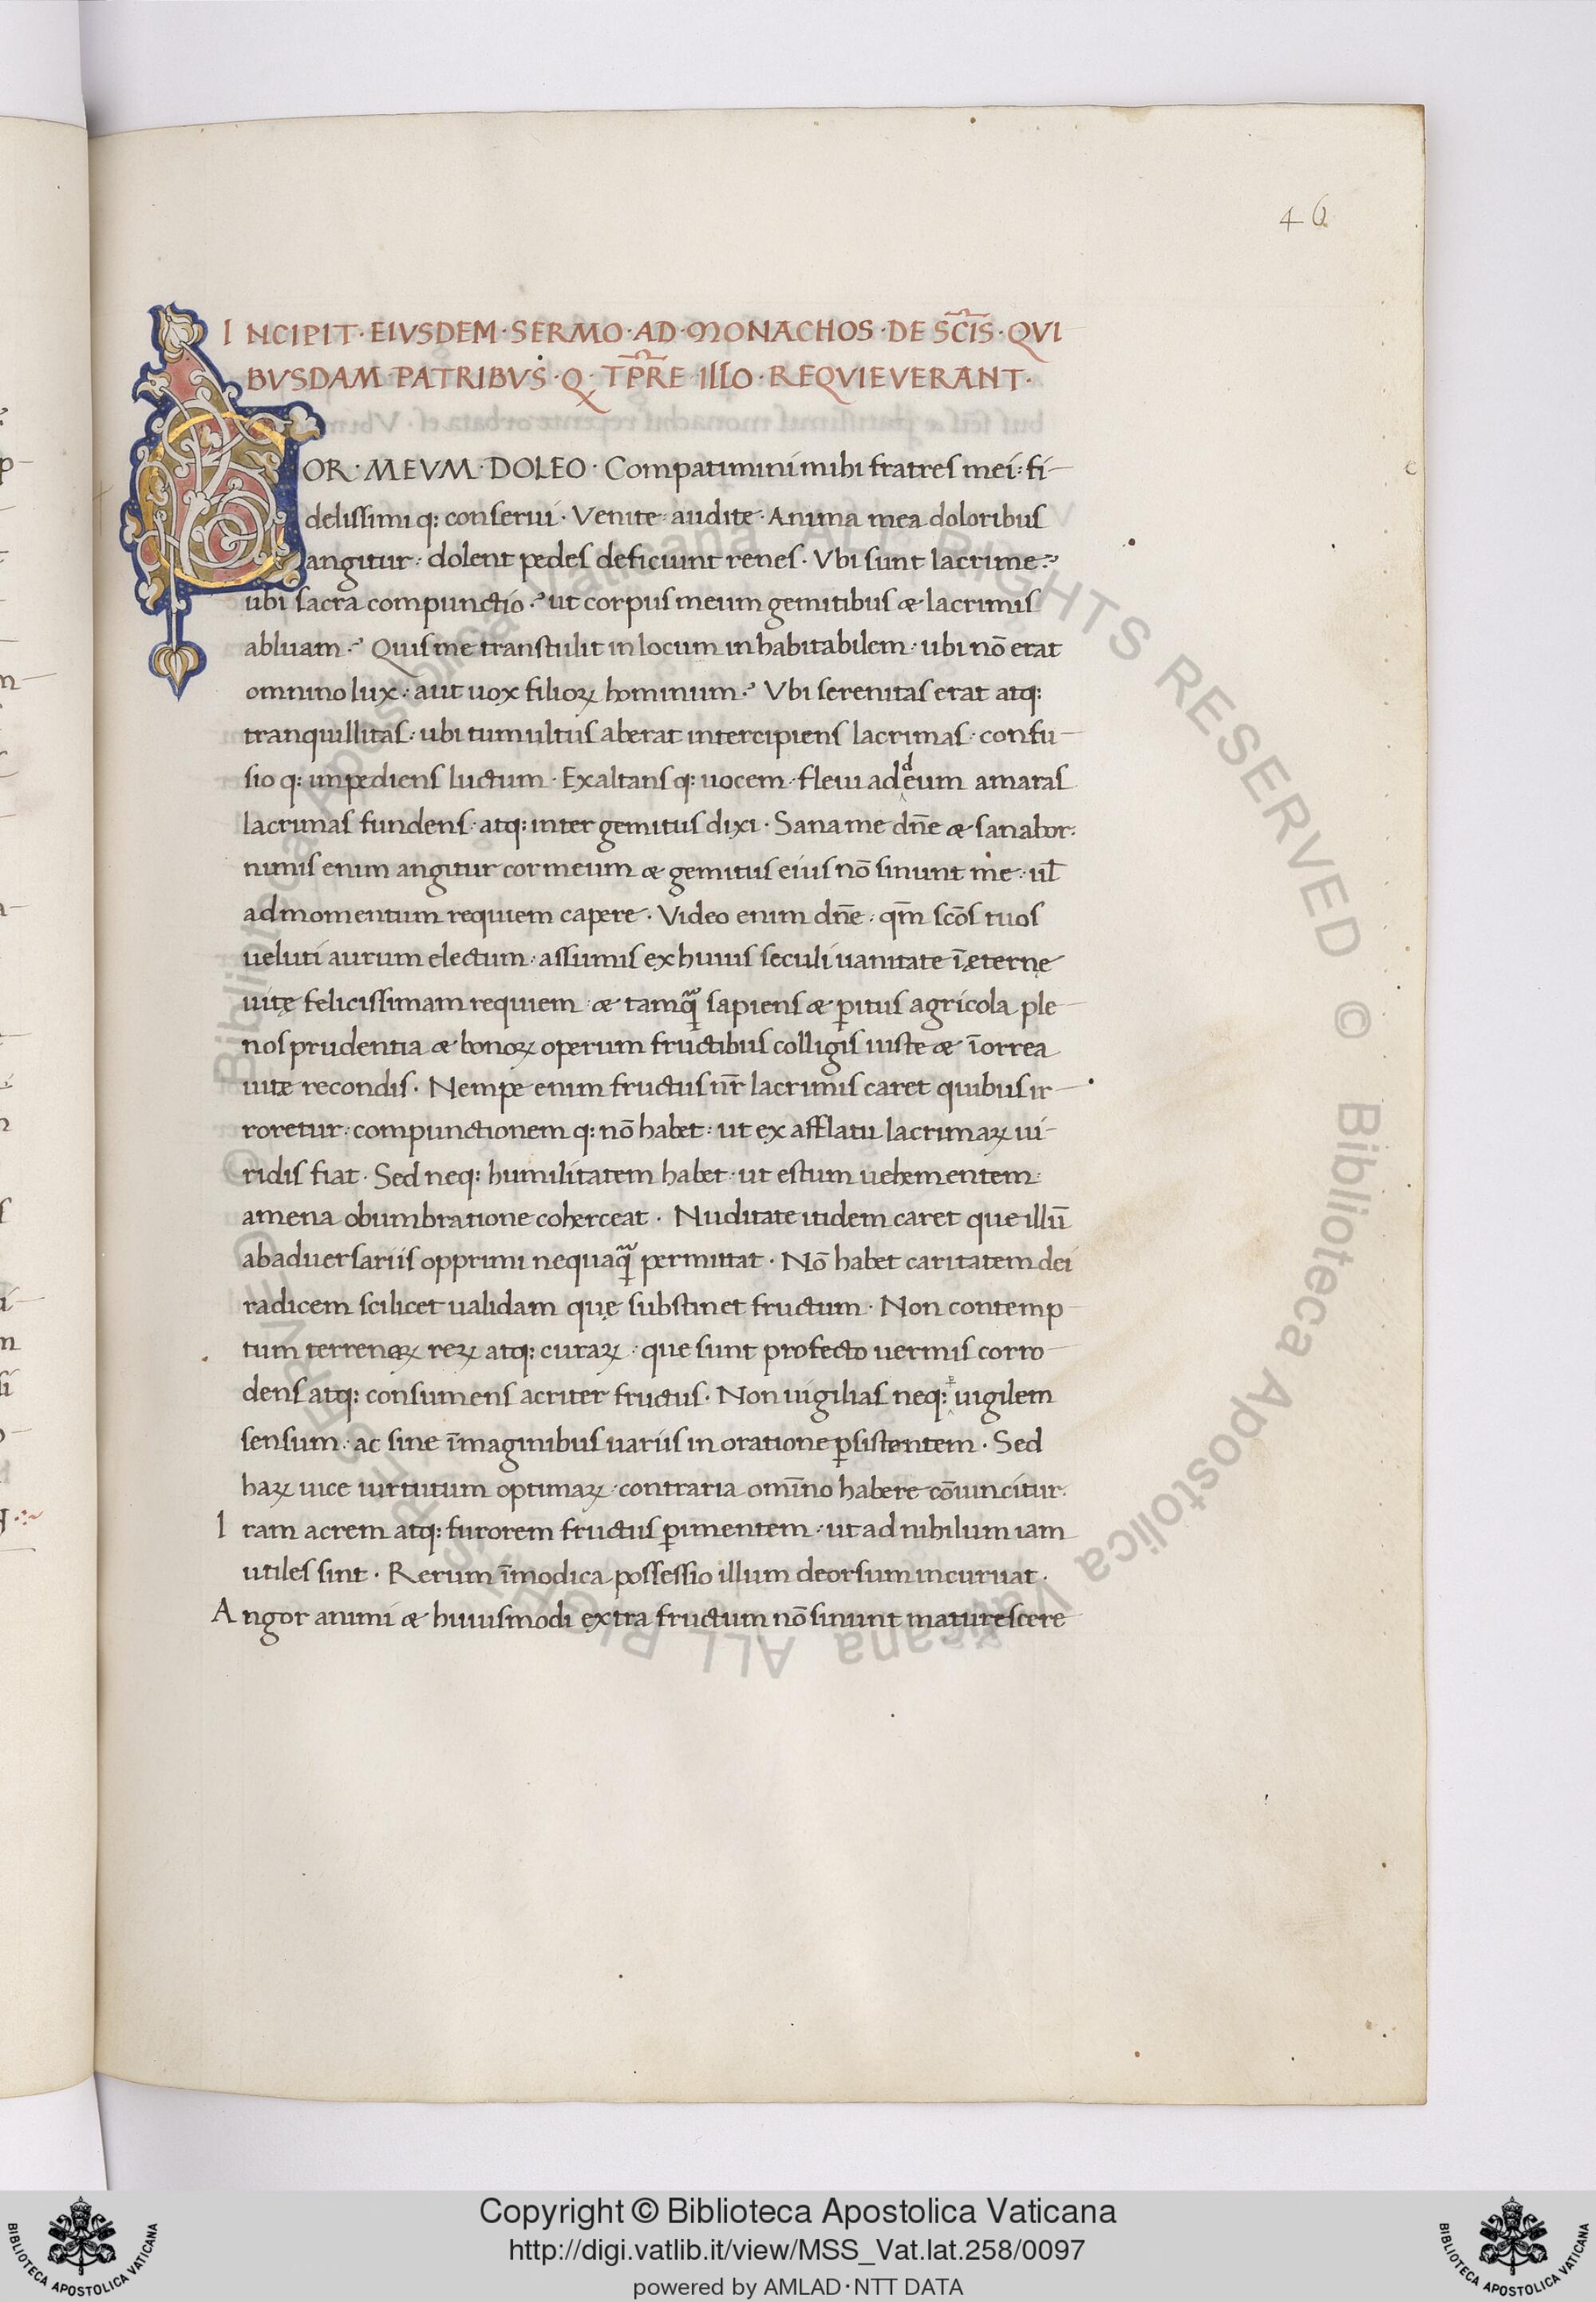 46
INCIPIT · EIVSDEM · SERMO · AD · MONACHOS · DE SC̅IS · QVI
BVSDAM · PATRIBVS · Q · TP̅RE · ILLO · REQVIEVERANT ·
COR · MEVM · DOLEO · Compatimini mihi fratres mei : fi-
delissimi q: conserui · Venite · audite · Anima mea doloribus
angitur : dolent pedes deficiunt renes · Vbi sunt lacrime ?
ubi sacra compunctio ? ut corpus meum gemitibus & lacrimis
abluam ? Quis me transtulit in locum inhabitabilem : ubi nō erat
omnino lux : aut uox filioꝝ hominum ? Vbi serenitas erat atq:
tranquillitas : ubi tumultus aberat intercipiens lacrimas · confu-
sio q: impediens luctum · Exaltans q: uocem · fleui ad deum amaras
lacrimas fundens · atq: inter gemitus dixi · Sana me dn̅e & sanabor :
nimis enim angitur cor meum & gemitus eius nō sinunt me : ul̅
ad momentum requiem capere · Video enim dn̅e : qm̅ sc̅os tuos
ueluti aurum electum : assumis ex huius seculi uanitate ī ęternę
uitę felicissimam requiem · & tamꝗ sapiens & ꝑitus agricola ple-
nos prudentia & bonoꝝ operum fructibus colligis iuste & ī orrea
uitæ recondis · Nempe enim fructus nr̅ lacrimis caret quibus ir-
roretur : compunctionem q: nō habet : ut ex afflatu lacrimaꝝ ui-
ridis fiat · Sed neq: humilitatem habet · ut estum uehementem :
amena obumbratione coherceat · Nuditate itidem caret que illū
ab aduersariis opprimi nequaꝗ permittat · Nō habet caritatem dei
radicem scilicet ualidam quę substinet fructum · Non contemp
tum terrenoꝝ reꝝ atq: curaꝝ : que sunt profecto uermis corro-
dens atq: consumens acriter fructus · Non uigilias neq: uigilem
sensum : ac sine īmaginibus uariis in oratione ꝑsistentem · Sed
haꝝ uice uirtutum optimaꝝ · contraria omīno habere cōuincitur :
Iram acrem atq: furorem fructus ꝑimentem : ut ad nihilum iam
utiles sint · Rerum īmodica possessio illum deorsum incuruat ·
Angor animi & huiusmodi extra fructum nō sinunt maturescere
© Biblioteca Apostolica Vaticana ALL RIGHTS RESERVED
© Biblioteca Apostolica Vaticana ALL RIGHTS RESERVED
Copyright © Biblioteca Apostolica Vaticana
http://digi.vatlib.it/view/MSS_Vat.lat.258/0097
powered by AMLAD·NTT DATA
BIBLIOTECA APOSTOLICA VATICANA
BIBLIOTECA APOSTOLICA VATICANA